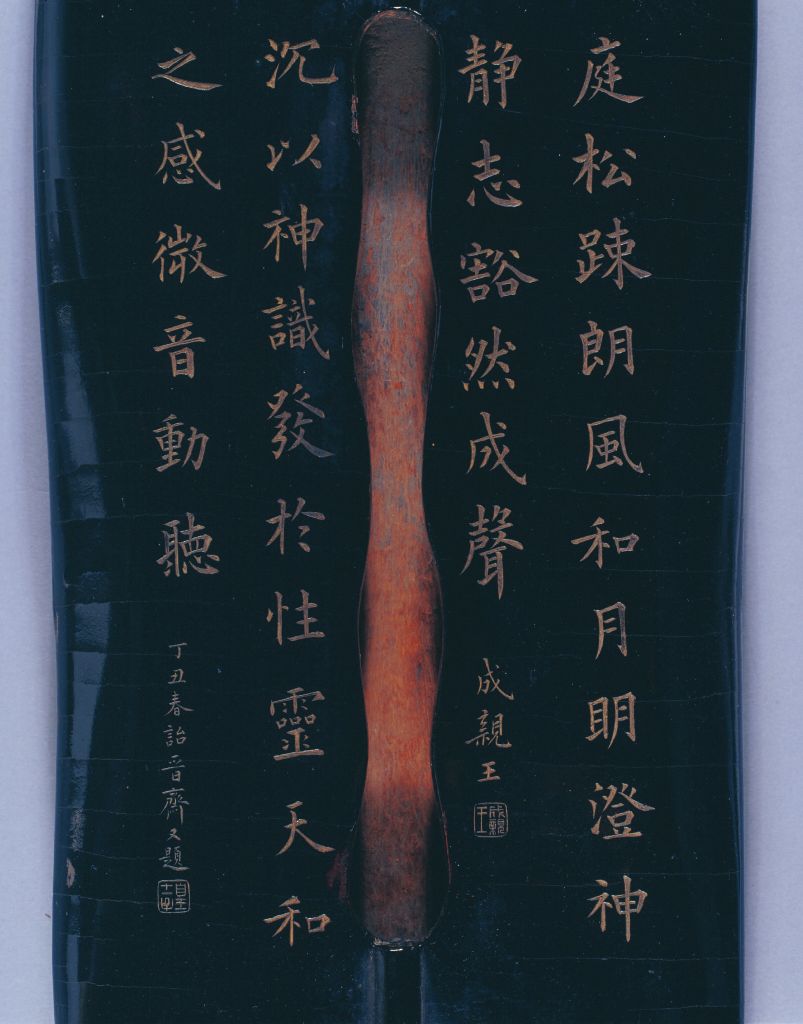 庭松踈朗風和月明澄神
静志豁然成聲
成親王
沉以神識發於性靈天和
之感微音動聽
丁丑春詒晋齋又題